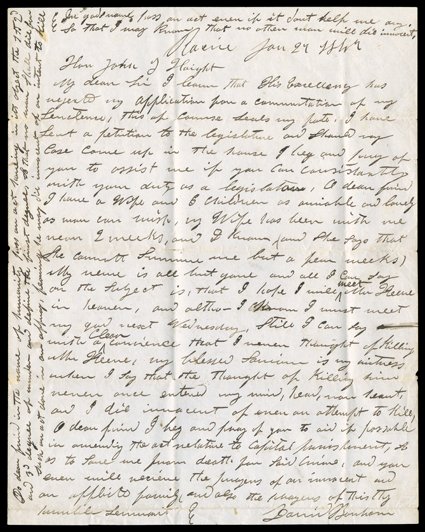 In god's name, pass an act even if it dont help me any.
So that I may know that no other man will die innocent,
Racine Jan 29
Hon John T Haight
My dear Sir I learn that His Excellency has
rejected my application for a commutation of my
Sentence, this of course seals my fate, I have
sent a petition to the legislature and should my
Case come up in the house I beg and pray of
you to assist me if you can consistantly
with your duty as a legislator, O dear friend
I have a Wife and 6 Children as amiable and lovely
as man can wish my Wife has been with me
near 2 weeks, and I know (and She says that
She cannot Survive me but a few weeks)
My nerve is all but gone and all I can say
on the subject is, that I hope I will meet after
in heaven, and altho I know I must meet
my god next Wednesday, Still I can say
with a Clear Convience that I never thought of Killing
my blessed Saviour is my witness
when I say that the thought of Killing him
never once entered my mind, head, nor heart
and I die innocent of even an attempt to Kill,
O dear friend I beg and pray of you to aid if possable
in amending the act relative to Capital punishment, so
as to Save me from death. for Said Crime, and you
ever will receive the prayers of an innocent and
an afflicted family and also the prayers of this thy
humble Servant
David Bonham
O dear friend in the name of humanity pass an act having in its object the 1st 2nd
and 3d degrees of murder
innocent of an intent to kill